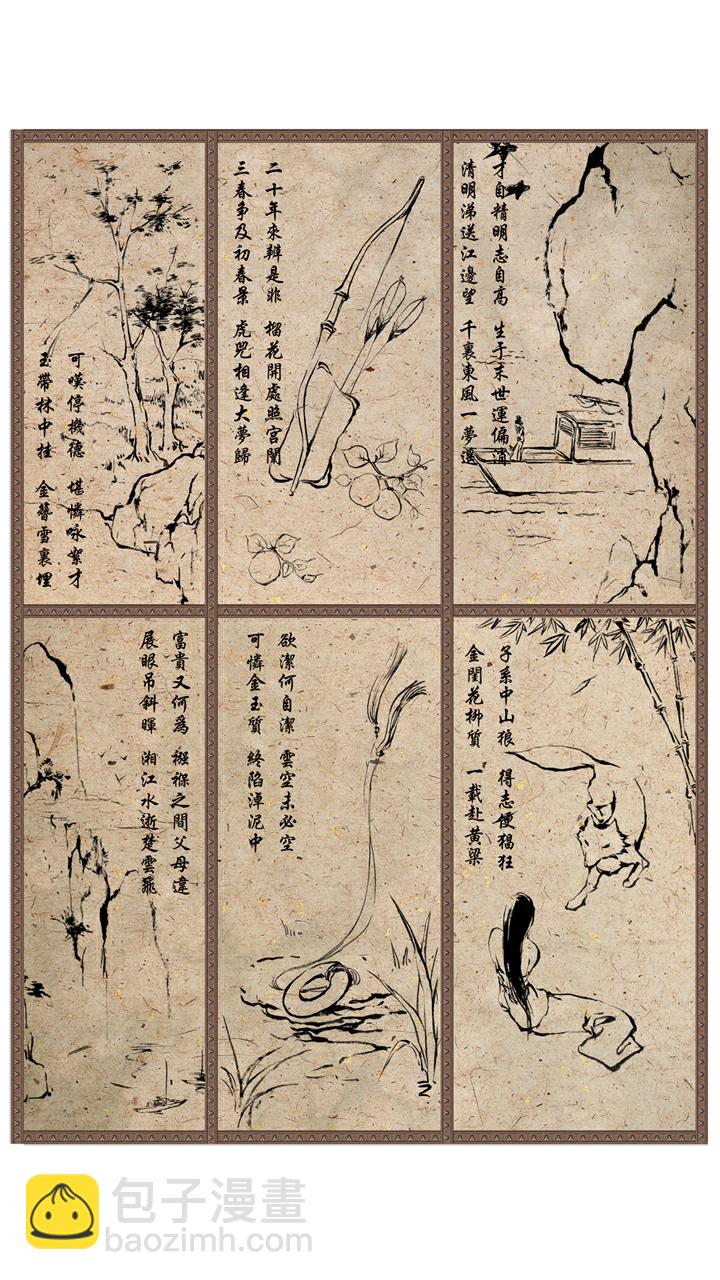 才自精明志自高 生于末世運偏消
清明涕送江邊望 千裏東風一夢遥
二十年來辨是非 榴花開處照宮闈
三春争及初春景 虎兕相逢大夢歸
可嘆停機德 堪憐咏絮才
玉帶林中挂 金簪雪裏埋
子系中山狼 得志便猖狂
金閨花柳質 一載赴黄粱
欲潔何曾潔 雲空未必空
可憐金玉質 終陷淖泥中
富貴又何爲 襁褓之間父母違
展眼吊斜暉 湘江水逝楚雲飛
包子漫畫
baozimh.com